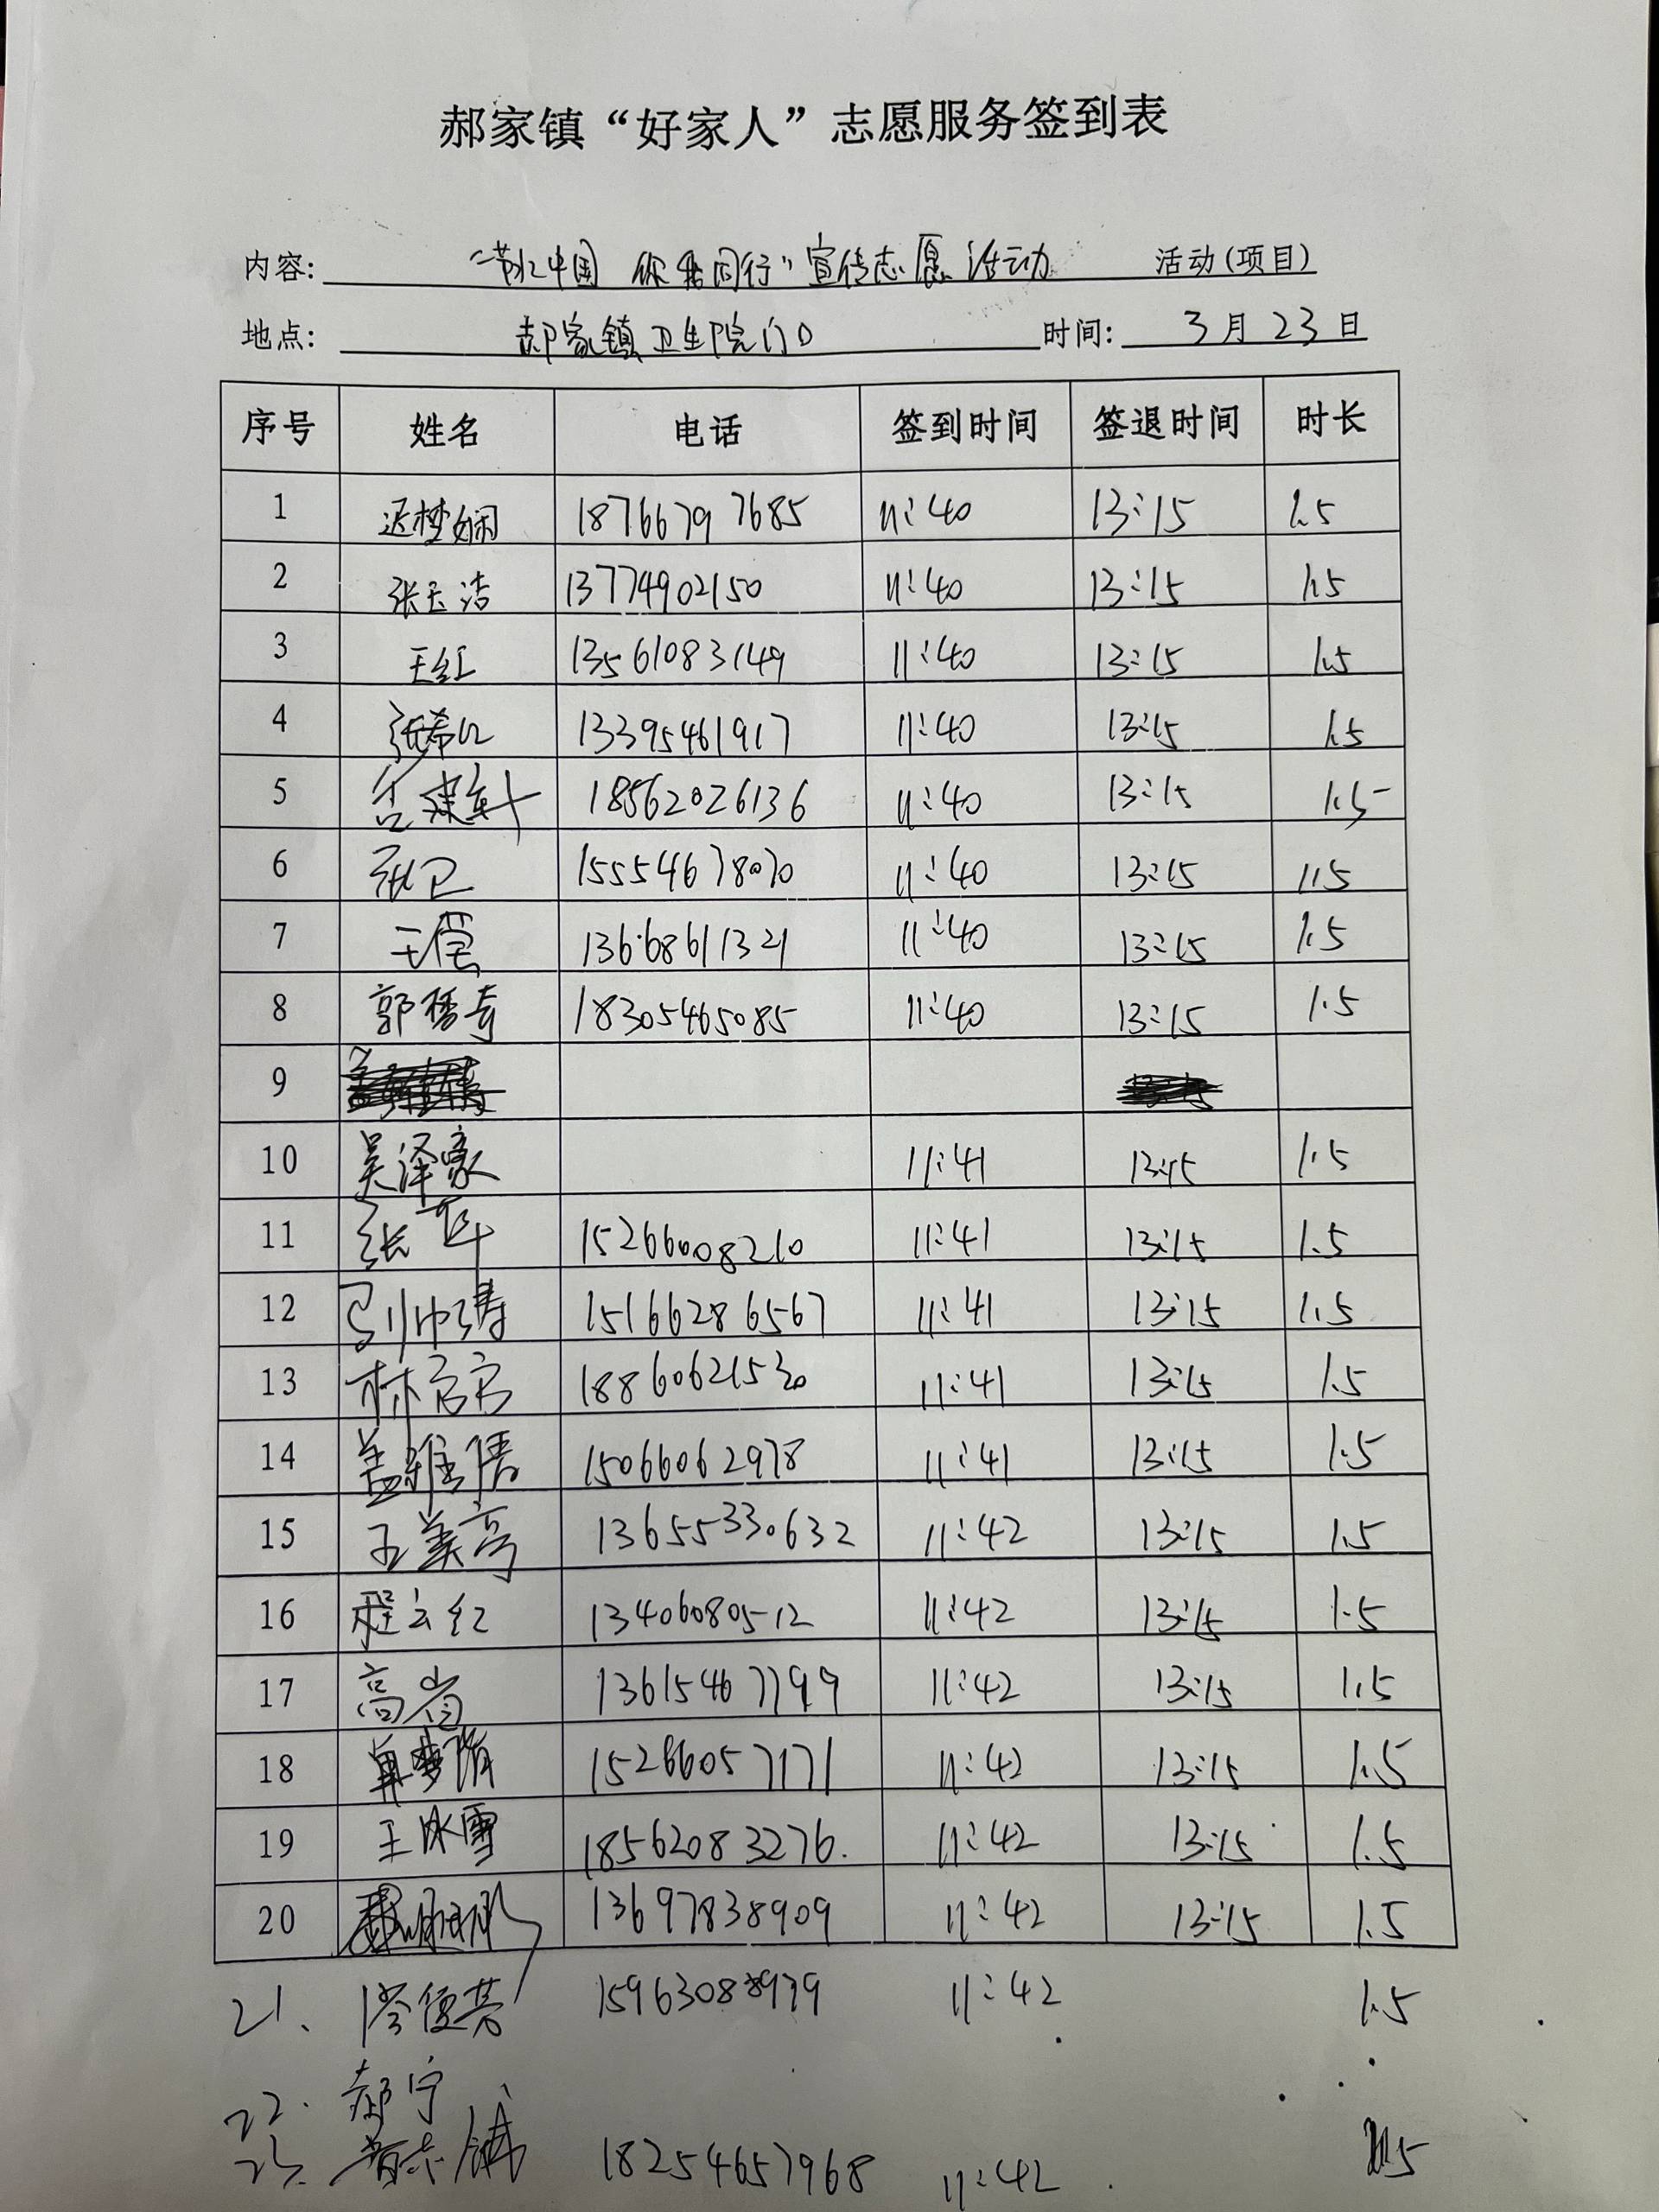 郝家镇“好家人”志愿服务签到表
内容: 中国 你我同行”宣传志愿活动 活动(项目)
地点: 郝家镇卫生院门口 时间: 3月23日
序号 姓名 电话 签到时间 签退时间 时长
1 迟梦娴 18766797685 11:40 13:15 1.5
2 张玉洁 13774902150 11:40 13:15 1.5
3 王红 13561083149 11:40 13:15 1.5
4 张希 13395461917 11:40 13:15 1.5
5 18562026136 11:40 13:15 1.5
6 张卫 15554678070 11:40 13:15 1.5
7 王莹 13668611321 11:40 13:15 1.5
8 郭秀 18305465085 11:40 13:15 1.5
9
10 吴泽家 11:41 13:15 1.5
11 张军 15266008210 11:41 13:15 1.5
12 15166286567 11:41 13:15 1.5
13 林 18860621530 11:41 13:15 1.5
14 盖雅倩 15066062978 11:41 13:15 1.5
15 王美亭 13655330632 11:42 13:15 1.5
16 程云红 13406080512 11:42 13:15 1.5
17 高岩 13615467799 11:42 13:15 1.5
18 15266057171 11:42 13:15 1.5
19 王冰雪 18562083276. 11:42 13:15 1.5
20 13697838909 11:42 13:15 1.5
21、 11:42 1.5
22. 郝宁
23. 18254657968 11:42